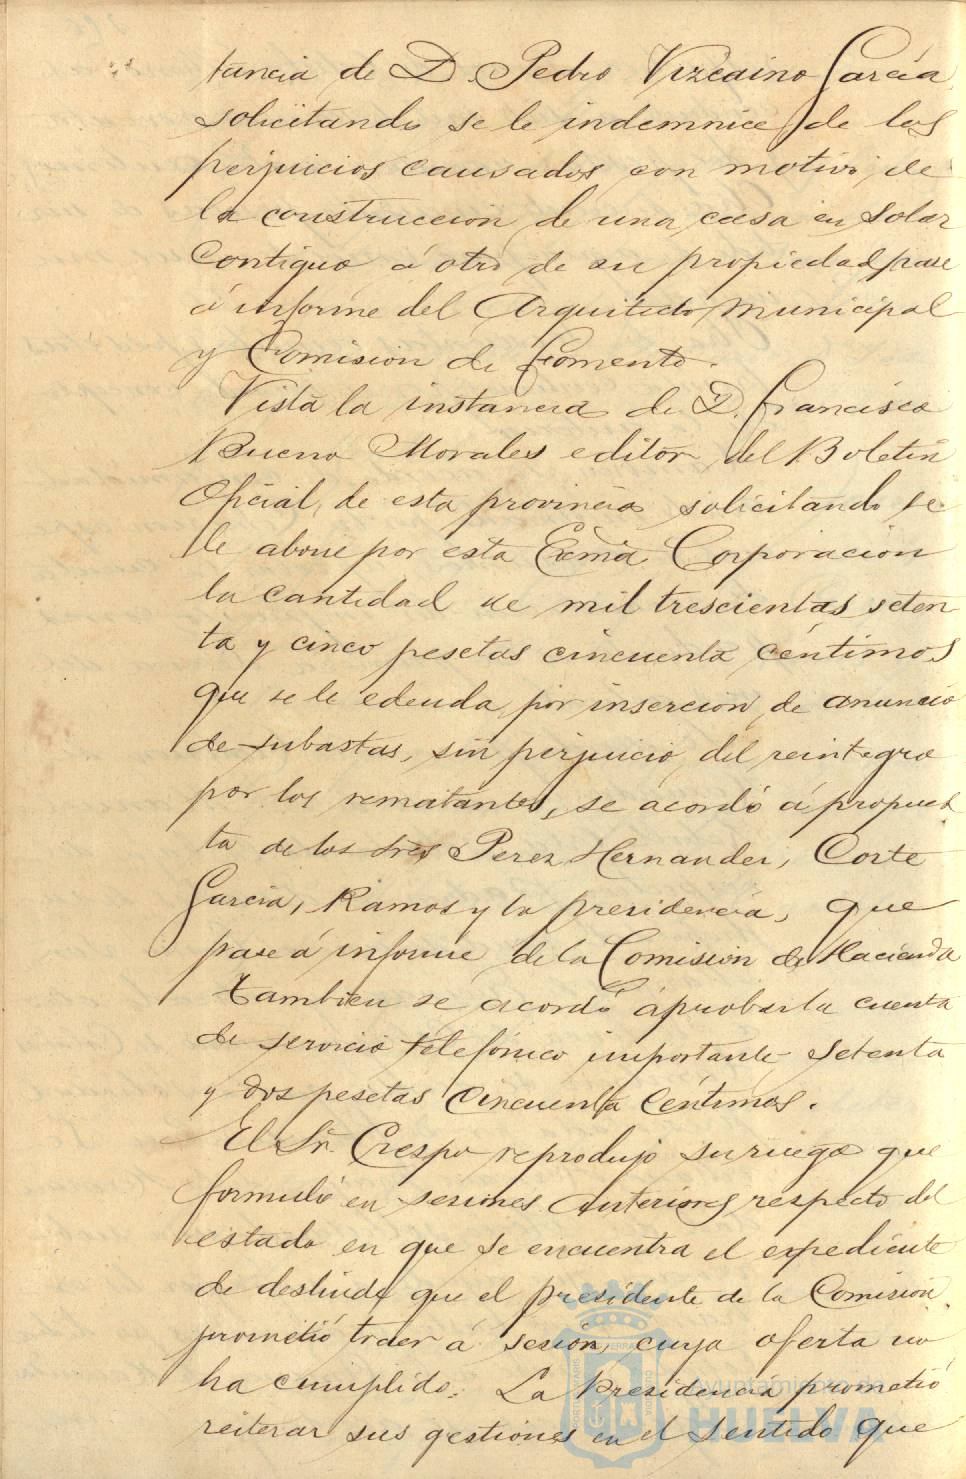 tancia de D. Pedro Vizcaino Garcia
solicitando se le indemnice de los
perjuicios causados con motivo de
la construccion de una casa en solar
contiguo á otro de su propiedad, pase
á informe del Arquitecto Municipal
y Comision de Fomento.
Vista la instancia de D. Francisco
Bueno Morales editor del Boletin
Oficial de esta provincia solicitando se
le abone por esta Excma Corporacion
la cantidad de mil trescientas seten
ta y cinco pesetas cincuenta céntimos
que se le adeuda por insercion de anuncio
de subastas, sin perjuicio del reintegro
por los rematantes, se acordó á propues
ta de los Sres Perez Hernandez, Corte
Garcia, Ramos y la presidencia, que
pase á informe de la Comision de Hacienda
Tambien se acordó aprobar la cuenta
de servicio telefónico importante setenta
y dos pesetas cincuenta céntimos.
El Sr. Crespo reprodujo su ruego que
formuló en sesiones anteriores respecto del
estado en que se encuentra el expediente
de deslinde que el presidente de la Comision
prometió traer á sesion, cuya oferta no
ha cumplido. La Presidencia prometió
reiterar sus gestiones en el sentido que
Ayuntamiento de
HUELVA